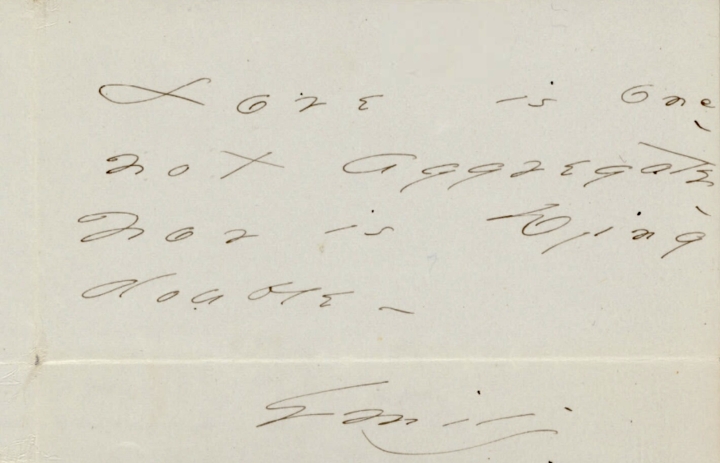 Love is one,
not Aggregate,
nor is Dying
double -
Emily